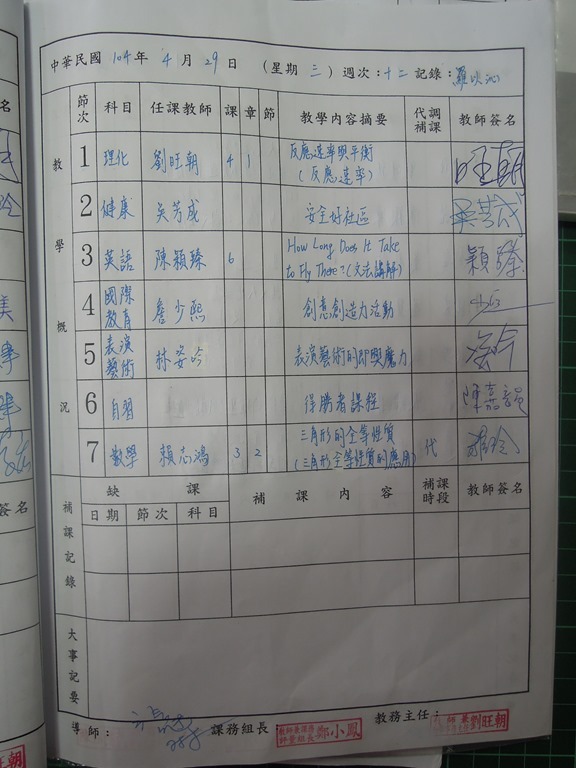 中華民國 104 年 4 月 29 日 (星期 三) 週次:十二 記錄:
節次 科目 任課教師 課 章 節 教學內容摘要 代調補課 教師簽名
教學概況
1 理化 劉旺朝 4 1 反應速率與平衡 旺朝
(反應速率)
2 健康 吳芳成 安全好社區 吳芳成
3 英語 陳穎臻 6 How Long Does It Take 穎臻
to Fly There?(文法講解)
4 國際教育 詹少熙 創意創造力活動
5 表演藝術 林姿吟 表演藝術的即興魔力
6 自習 得勝者課程
7 數學 賴志鴻 3 2 三角形的全等性質 代
(三角形全等性質的應用)
補課記錄
缺課 補課內容 補課時段 教師簽名
日期 節次 科目
大事記要
導師: 課務組長: 小鳳 教務主任: 劉旺朝